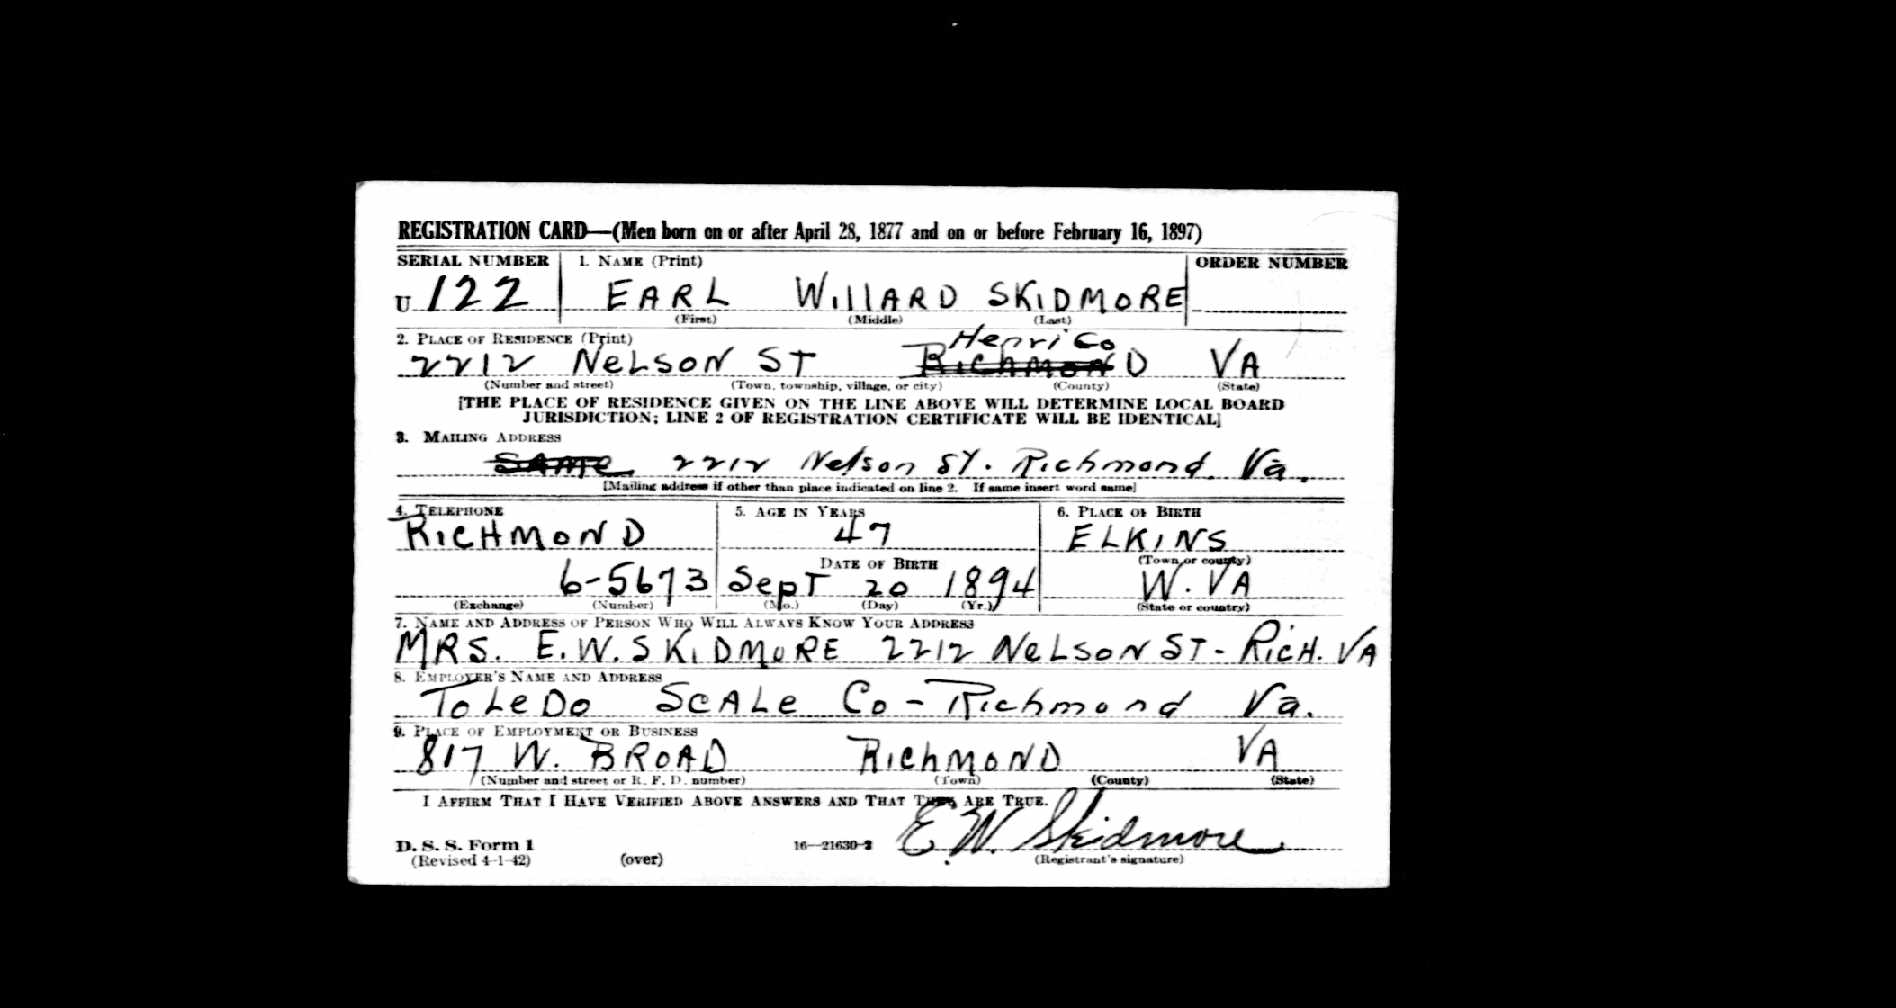 REGISTRATION CARD—(Men born on or after April 28, 1877 and on or before February 16, 1897)
SERIAL NUMBER 1. NAME (Print) ORDER NUMBER
U 122 EARL WillARD SKIDMORE
(First) (Middle) (Last)
2. PLACE OF RESIDENCE (Print)
Henri Co
2212 NeLSON ST RICHMOND VA
(Number and street) (Town, township, village, or city) (County) (State)
[THE PLACE OF RESIDENCE GIVEN ON THE LINE ABOVE WILL DETERMINE LOCAL BOARD
JURISDICTION; LINE 2 OF REGISTRATION CERTIFICATE WILL BE IDENTICAL]
3. MAILING ADDRESS
SAMe 2212 Nelson St. Richmond Va.
[Mailing address if other than place indicated on line 2. If same insert word same]
4. TELEPHONE 5. AGE IN YEARS 6. PLACE OF BIRTH
RICHMOND 47 ELKINS
DATE OF BIRTH (Town or county)
6-5673 Sept 20 1894 W. VA
(Exchange) (Number) (Mo.) (Day) (Yr.) (State or country)
7. NAME AND ADDRESS OF PERSON WHO WILL ALWAYS KNOW YOUR ADDRESS
MRS. E.W. SKIDMORE 2212 NeLSON ST - RICH. VA
8. EMPLOYER'S NAME AND ADDRESS
ToLeDo ScALe Co - Richmond Va.
9. PLACE OF EMPLOYMENT OR BUSINESS
817 W. BROAD RIChMOND VA
(Number and street or R. F. D. number) (Town) (County) (State)
I AFFIRM THAT I HAVE VERIFIED ABOVE ANSWERS AND THAT THEY ARE TRUE.
E.W. Skidmore
D. S. S. Form 1 16—21630-2
(Revised 4-1-42) (over) (Registrant's signature)